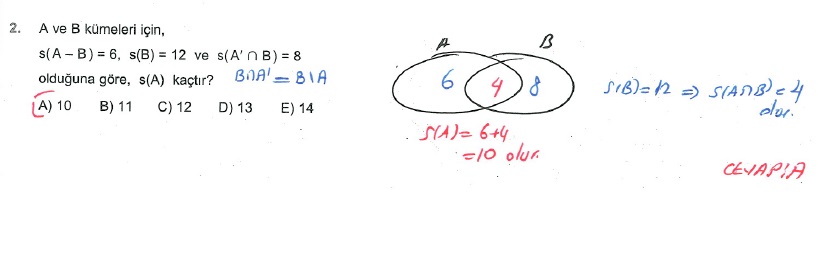 2. A ve B kümeleri için,
s(A – B) = 6, s(B) = 12 ve s(A' ∩ B) = 8
olduğuna göre, s(A) kaçtır? B∩A' = B\A
A) 10 B) 11 C) 12 D) 13 E) 14
A B
6 4 8
s(A) = 6+4
=10 olur.
s(B)=12 => s(A∩B)=4
olur.
CEVAP:A